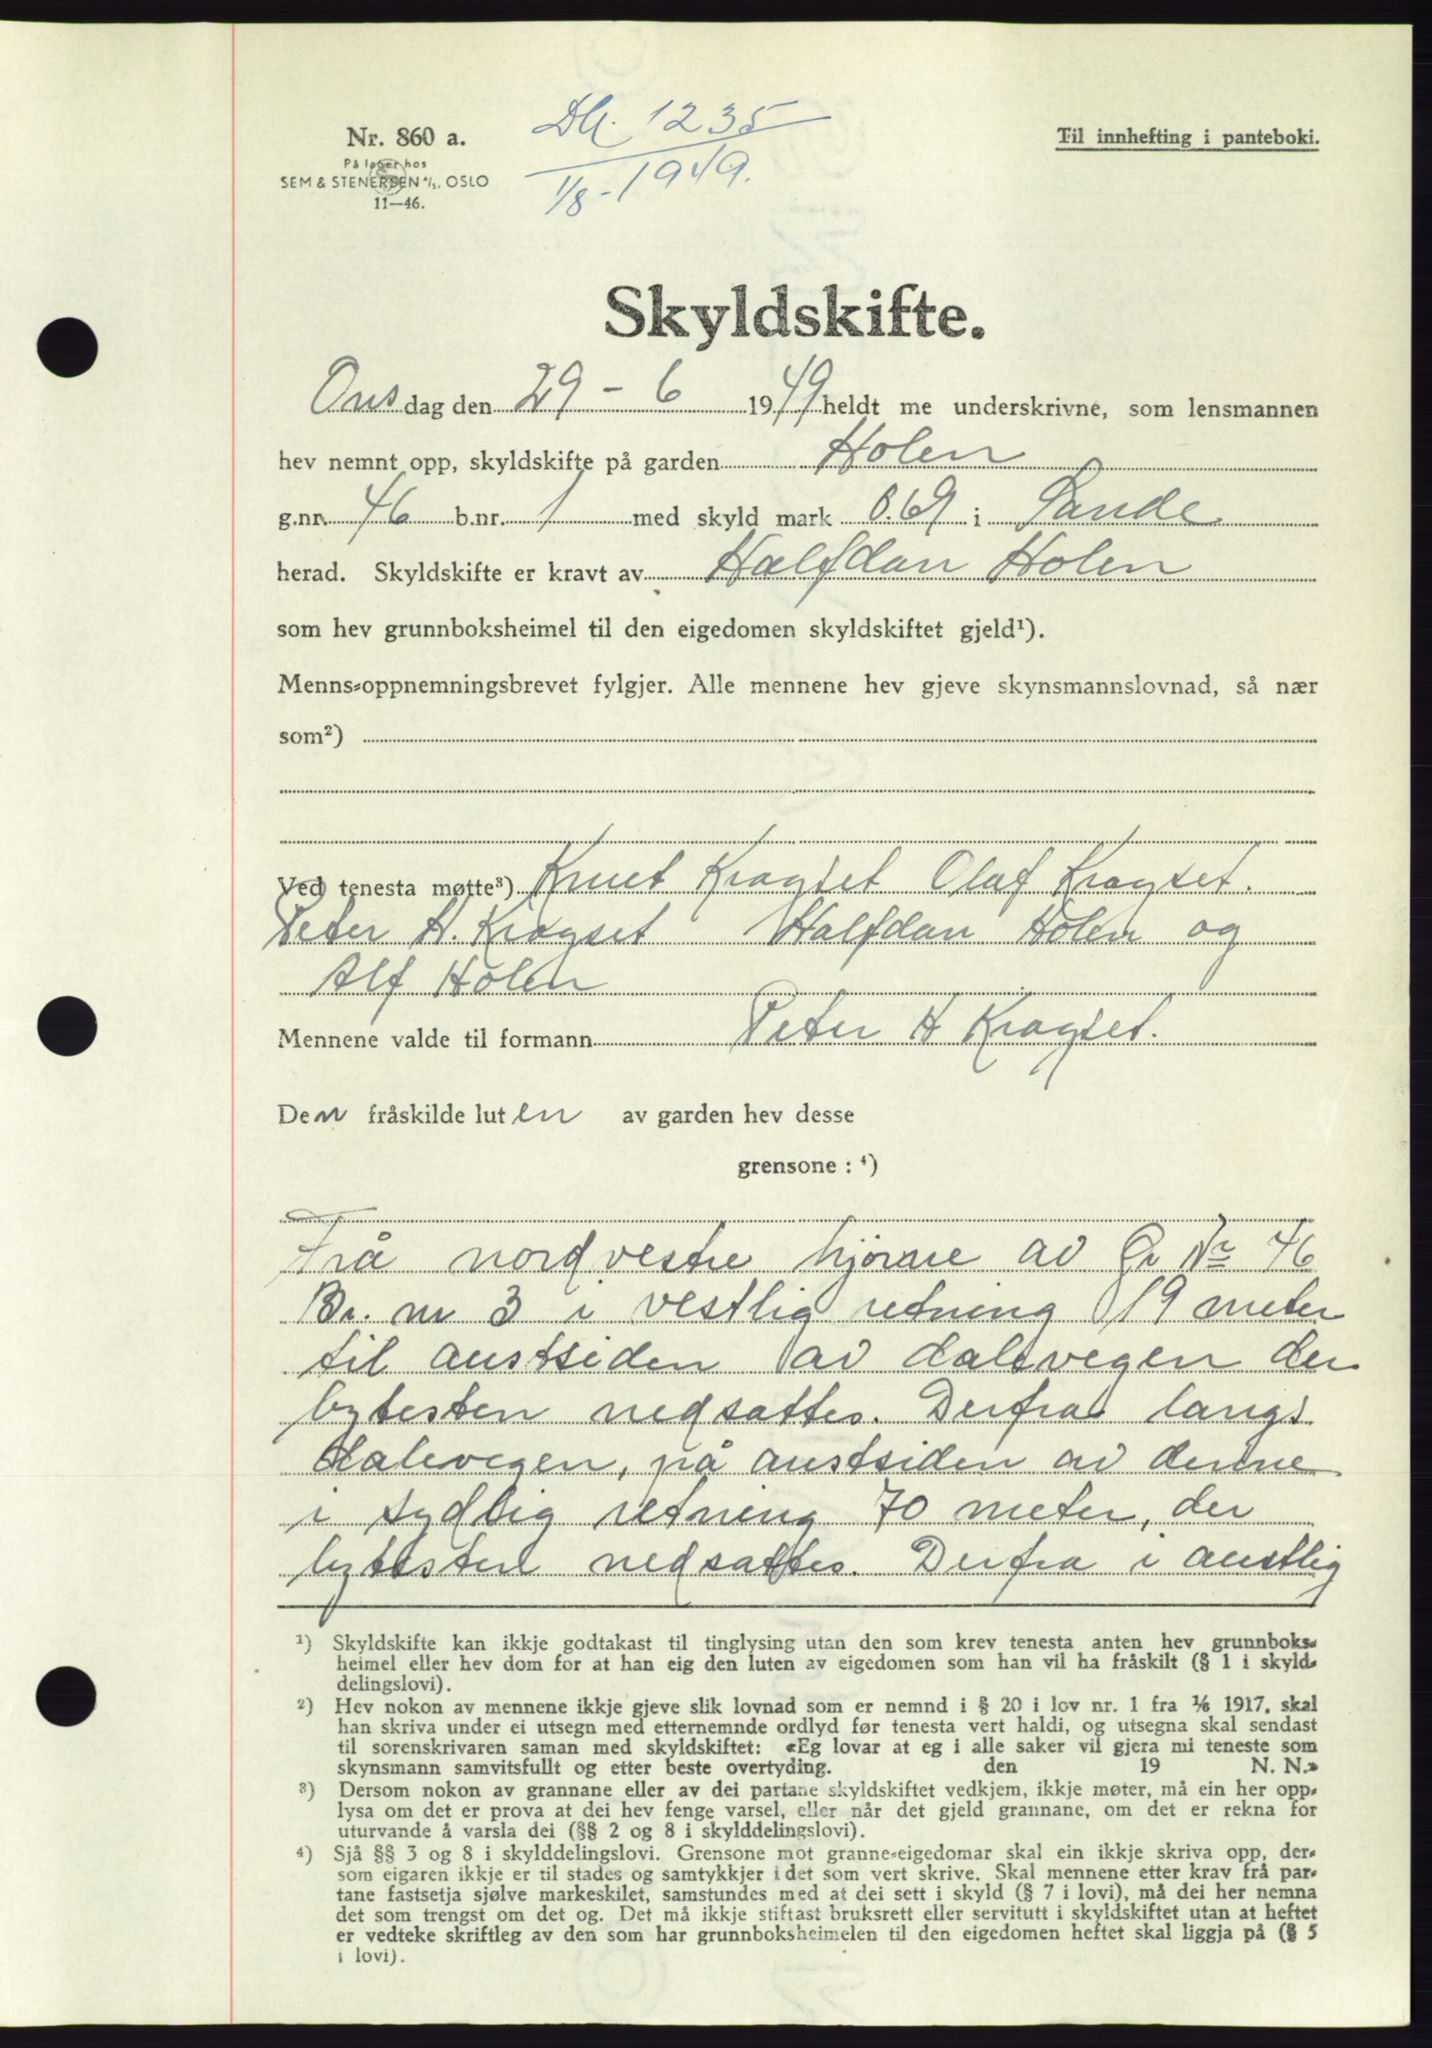 Db. 1235
1/8-1949.
Nr. 860 a.
På lager hos
SEM & STENERSEN A/S, OSLO
11—46.
Til innhefting i panteboki.
Skyldskifte.
Onsdag den 29 - 6 1949 heldt me underskrivne, som lensmannen
hev nemnt opp, skyldskifte på garden Holen
g.nr. 46 b.nr. 1 med skyld mark 0.69 i Sande
herad. Skyldskifte er kravt av Halfdan Holen
som hev grunnboksheimel til den eigedomen skyldskiftet gjeld¹).
Menns-oppnemningsbrevet fylgjer. Alle mennene hev gjeve skynsmannslovnad, så nær
som²)
Ved tenesta møtte³) Knut Kragset Olaf Kragset.
Peter H. Kragset Halfdan Holen og
Alf Holen
Mennene valde til formann Peter H Kragset.
Den fråskilde luten av garden hev desse
grensone : ⁴)
Frå nordvestre hjørne av Gr Nr 46
Br. nr 3 i vestlig retning 19 meter
til austsiden av dalevegen der
bytesten nedsattes. Derfra langs
dalevegen, på austsiden av denne
i sydlig retning 70 meter, der
bytesten nedsattes. Derfra i austlig
¹) Skyldskifte kan ikkje godtakast til tinglysing utan den som krev tenesta anten hev grunnboks-
heimel eller hev dom for at han eig den luten av eigedomen som han vil ha fråskilt (§ 1 i skyld-
delingslovi).
²) Hev nokon av mennene ikkje gjeve slik lovnad som er nemnd i § 20 i lov nr. 1 fra 1/6 1917, skal
han skriva under ei utsegn med etternemnde ordlyd før tenesta vert haldi, og utsegna skal sendast
til sorenskrivaren saman med skyldskiftet: «Eg lovar at eg i alle saker vil gjera mi teneste som
skynsmann samvitsfullt og etter beste overtyding. den 19 N. N.»
³) Dersom nokon av grannane eller av dei partane skyldskiftet vedkjem, ikkje møter, må ein her opp-
lysa om det er prova at dei hev fenge varsel, eller når det gjeld grannane, om det er rekna for
uturvande å varsla dei (§§ 2 og 8 i skylddelingslovi).
⁴) Sjå §§ 3 og 8 i skylddelingslovi. Grensone mot granne-eigedomar skal ein ikkje skriva opp, der-
som eigaren ikkje er til stades og samtykkjer i det som vert skrive. Skal mennene etter krav frå par-
tane fastsetja sjølve markeskilet, samstundes med at dei sett i skyld (§ 7 i lovi), må dei her nemna
det som trengst om det og. Det må ikkje stiftast bruksrett eller servitutt i skyldskiftet utan at heftet
er vedteke skriftleg av den som har grunnboksheimelen til den eigedomen heftet skal liggja på (§ 5
i lovi).